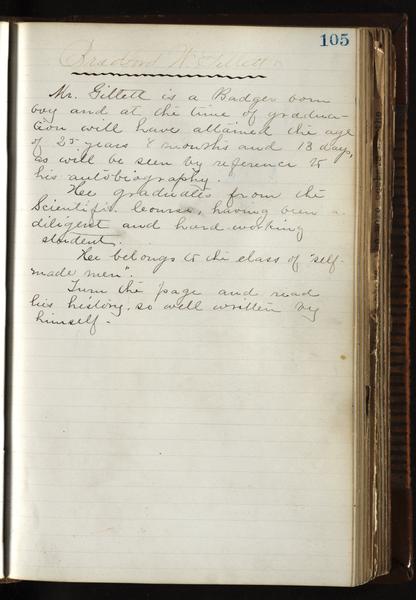 105
Bradford W. Gillett
Mr. Gillett is a Badger born
boy and at the time of gradua-
tion will have attained the age
of 25 years 8 months and 13 days,
as will be seen by reference to
his autobiography.
He graduates from the
Scientific Course, having been a
diligent and hard working
student.
He belongs to the class of "self-
made men".
Turn the page and read
his history, so well written by
himself.